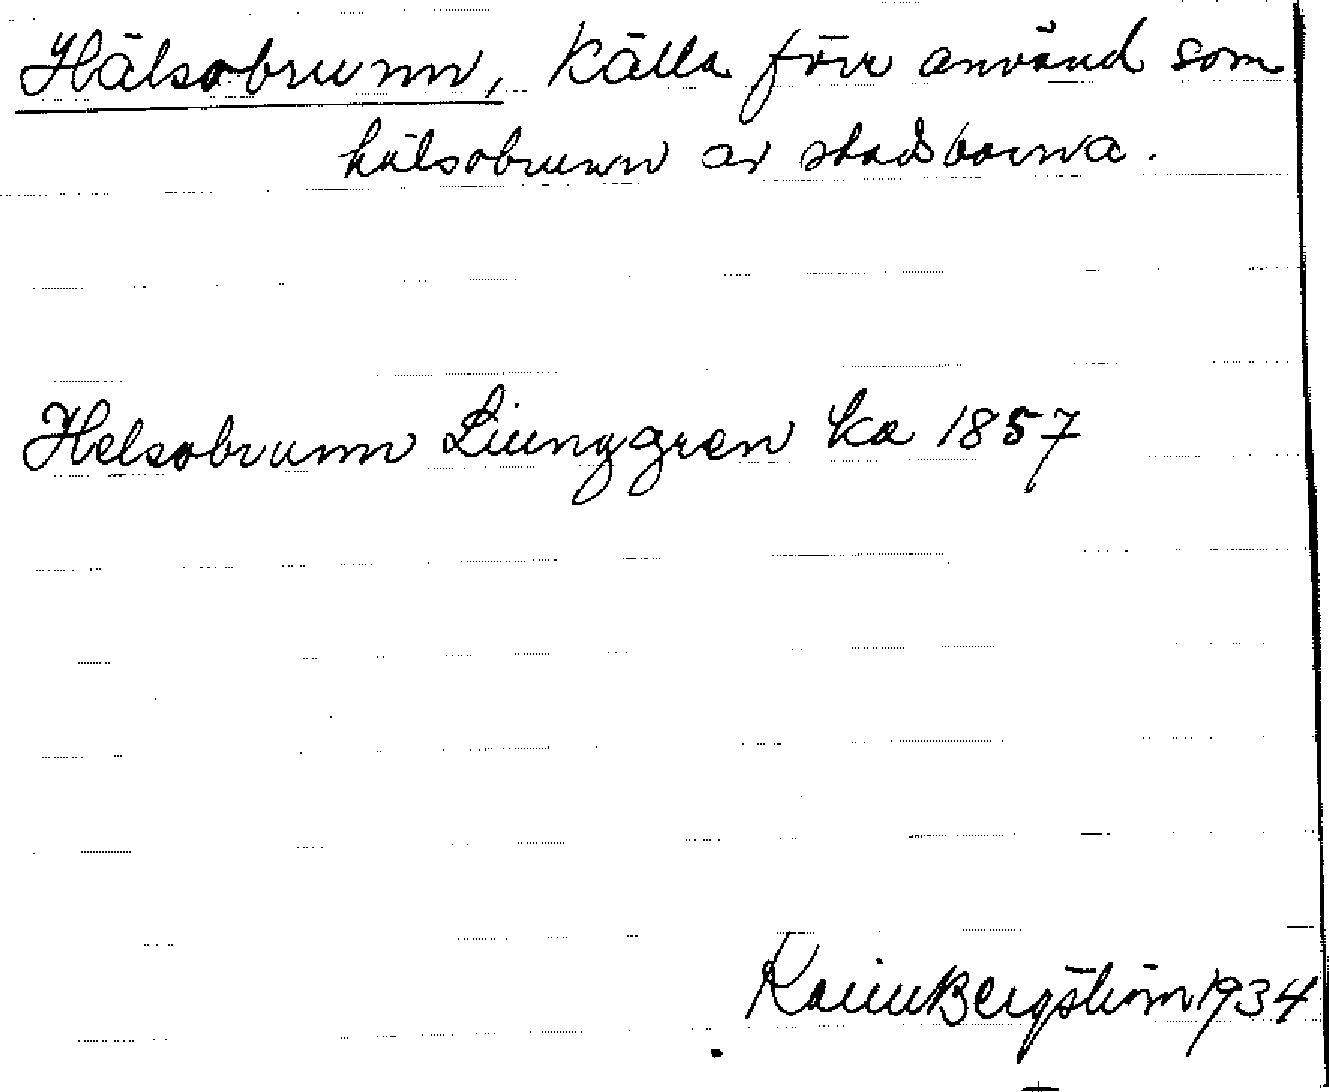 Hälsobrunn, Källa förr använd som
hälsobrunn av stadsborna.
Helsobrunn Ljunggren ka 1857
Karin Bergström 1934